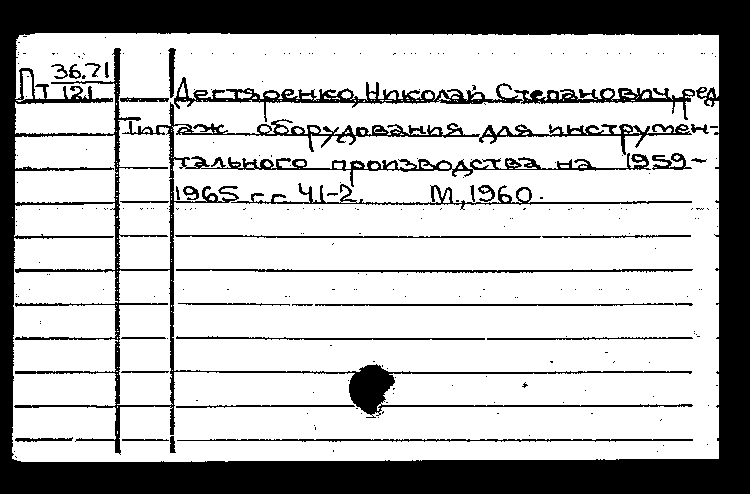 Пт 36.71/121
Дегтяренко, Николай Степанович, ред
Типаж оборудования для инструмен-
тального производства на 1959-
1965 г.г. Ч.1-2. М., 1960.